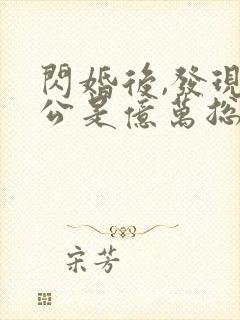 閃婚後,發現
公是億萬總
宋芳